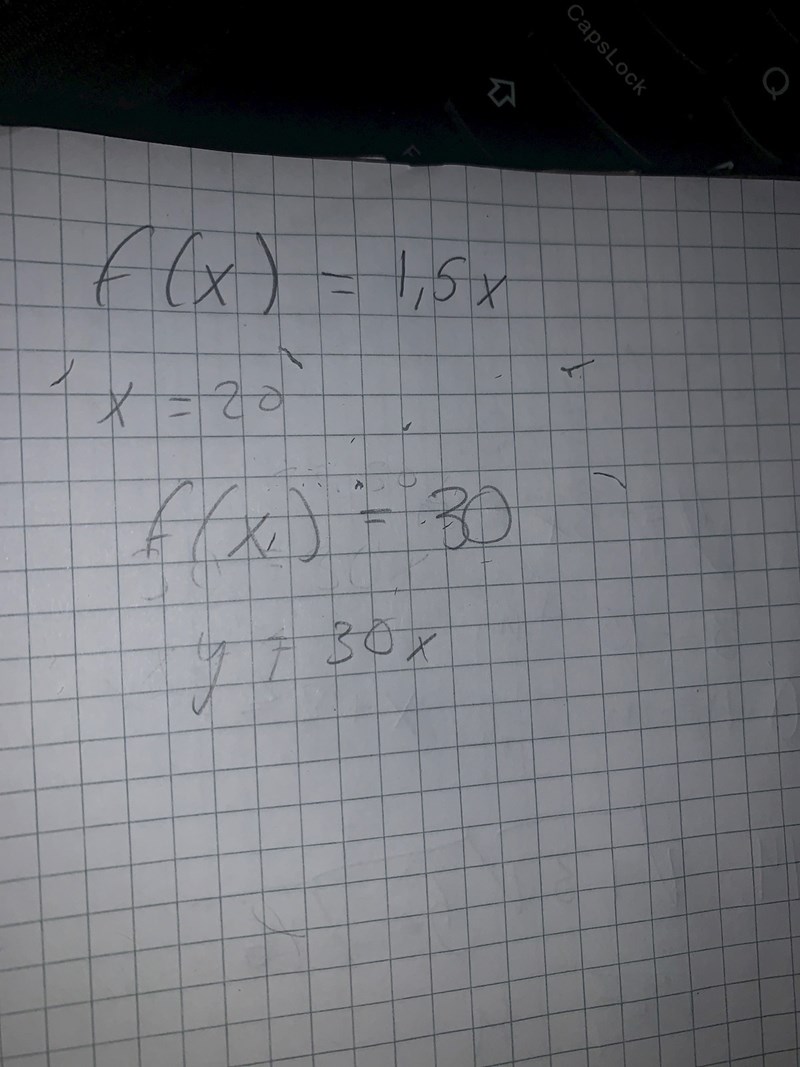 CapsLock
Q
f(x) = 1,5x
x = 20
f(x) = 30
y = 30x